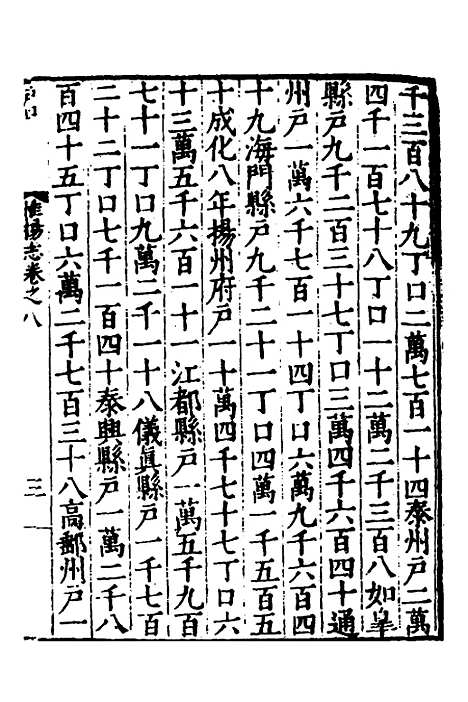 千三百八十九丁口二萬七百一十四泰州戶二萬
四千一百七十八丁口一十二萬二千三百八如皐
縣戶九千二百三十七丁口三萬四千六百四十通
州戶一萬六千六百一十四丁口六萬九千六百四
十九海門縣戶九千二十一丁口四萬一千五百五
十成化八年揚州府戶一十萬四千七十七丁口六
十三萬五千六百一十一江都縣戶一萬五千九百
七十一丁口九萬二千一十八儀眞縣戶一千七百
二十二丁口七千一百四十泰興縣戶一萬二千八
百四十五丁口六萬二千七百三十八高郵州戶一
惟揚志卷之八
三